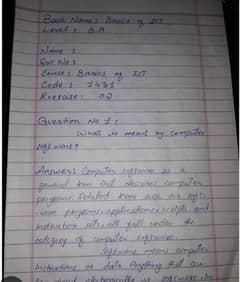 Book Name: Basics of ICT
Level: B.A
Name:
Roll No:
Course: Basics of ICT
Code: 1431
Exercise: 02
Question No 1:
What is meant by computer
software?
Answer: Computer software is a
general term that describes computer
programs. Related terms such as
programs, applications, scripts, and
instruction sets all fall under the
category of computer software.
Software means computer
instructions or data. Anything that can